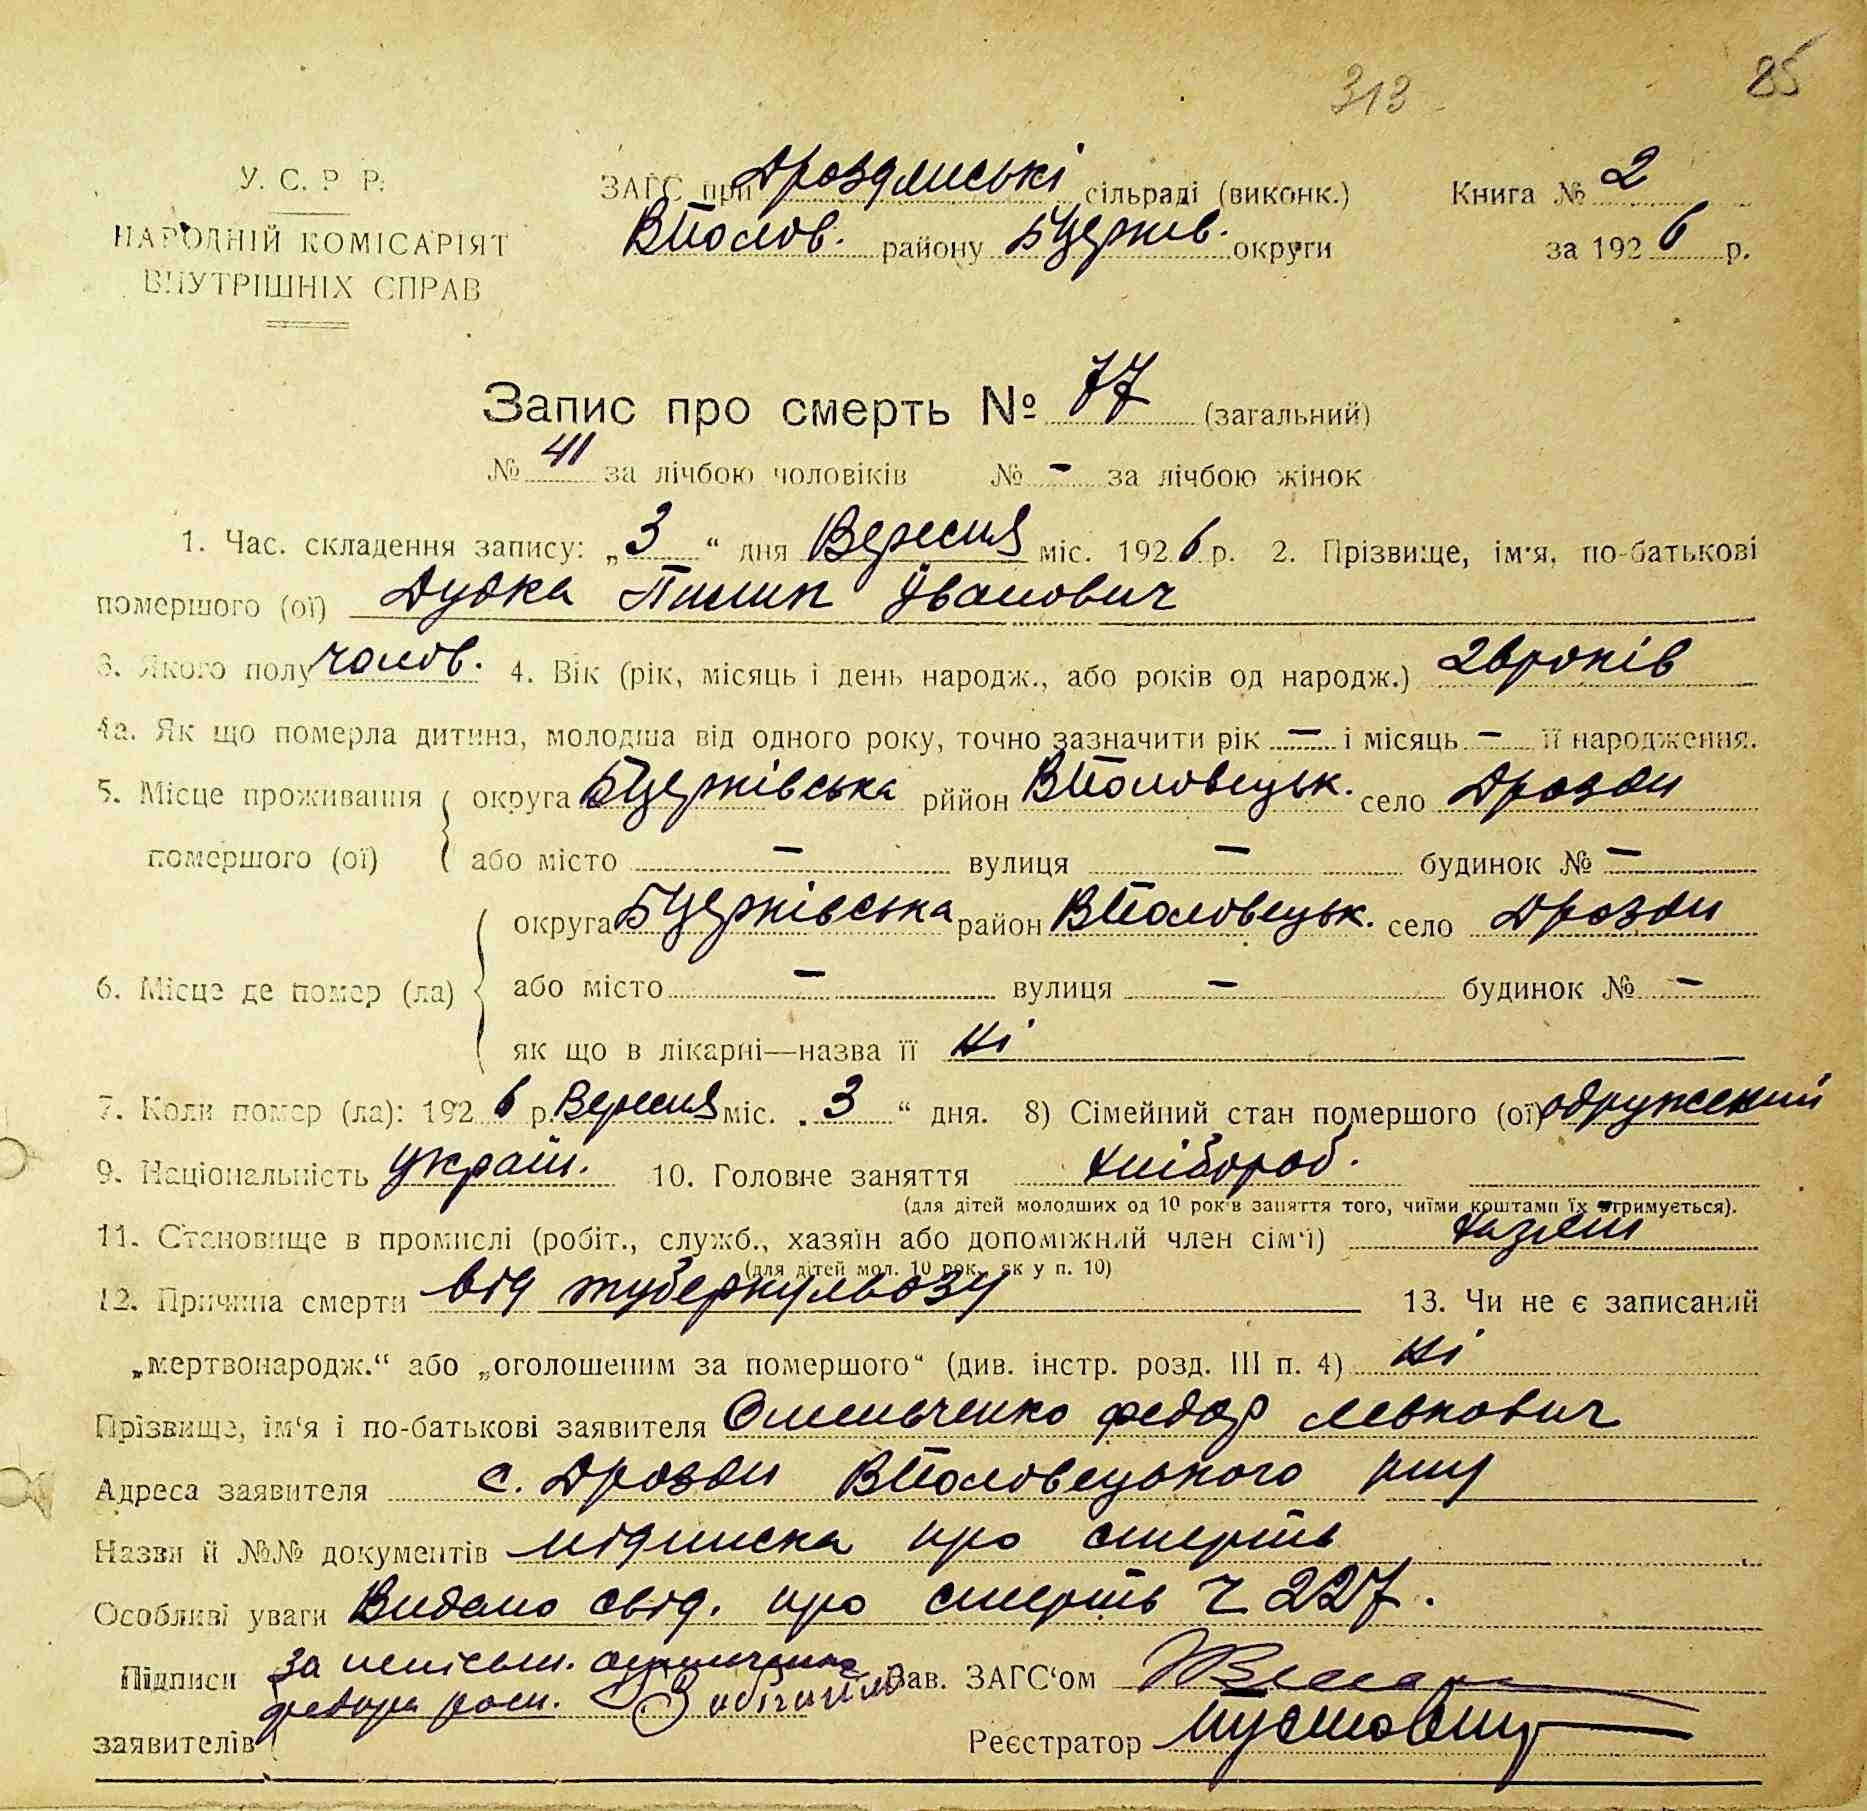 313 85
У. С. Р. Р.
НАРОДНІЙ КОМІСАРІЯТ
ВНУТРІШНІХ СПРАВ
ЗАГС при Дроздянські сільраді (виконк.) Книга № 2
ВПолов. району БЦерків. округи за 1926 р.
Запис про смерть № 77 (загальний)
№ 41 за лічбою чоловіків № — за лічбою жінок
1. Час. складення запису: „3“ дня Вересня міс. 1926 р. 2. Прізвище, ім'я, по-батькові
помершого (ої) Дудка Пилип Іванович
3. Якого полу чолов. 4. Вік (рік, місяць і день народж., або років од народж.) 26 років
4а. Як що померла дитина, молодша від одного року, точно зазначити рік — і місяць — її народження.
5. Місце проживання округа БЦерківська рййон ВПоловецьк. село Дрозди
помершого (ої) або місто — вулиця — будинок № —
округа БЦерківська район ВПоловецьк. село Дрозди
6. Місце де помер (ла) або місто — вулиця — будинок № —
як що в лікарні—назва її Ні
7. Коли помер (ла): 1926 р. Вересня міс. „3“ дня. 8) Сімейний стан помершого (ої) одружений
9. Національність україн. 10. Головне заняття хлібороб.
(для дітей молодших од 10 років заняття того, чиїми коштами їх отримується).
11. Становище в промислі (робіт., служб., хазяїн або допоміжний член сім'ї) хазяїн
(для дітей мол. 10 рок. як у п. 10)
12. Причина смерти від туберкульозу 13. Чи не є записаний
„мертвонародж.“ або „оголошеним за помершого“ (див. інстр. розд. III п. 4) Ні
Прізвище, ім'я і по-батькові заявителя Омельченко Федор Левкович
Адреса заявителя с. Дрозди ВПоловецького р-ну
Назви й №№ документів підписка про смерть
Особливі уваги Видано свід. про смерть Ч 227.
Підписи за неписьм. Зав. ЗАГС'ом
Федора розп.
заявителів Реєстратор